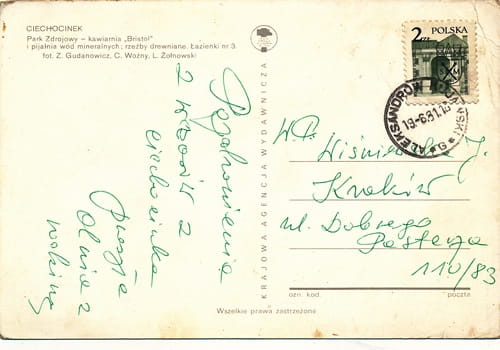 CIECHOCINEK
Park Zdrojowy – kawiarnia „Bristol"
i pijalnia wód mineralnych; rzeźby drewniane. Łazienki nr 3.
fot. Z. Gudanowicz, C. Woźny, L. Żołnowski
Pozdrowienia
z wczasów z
Ciechocinka
przesyła
z
rodziną
KRAJOWA AGENCJA WYDAWNICZA
2 ZŁ POLSKA
ALEKSANDRÓW
19-6.81.
W.P.
Wiśniewska J.
Kraków
ul. Dobrego
Pasterza
110/83
ozn. kod. poczta
Wszelkie prawa zastrzeżone